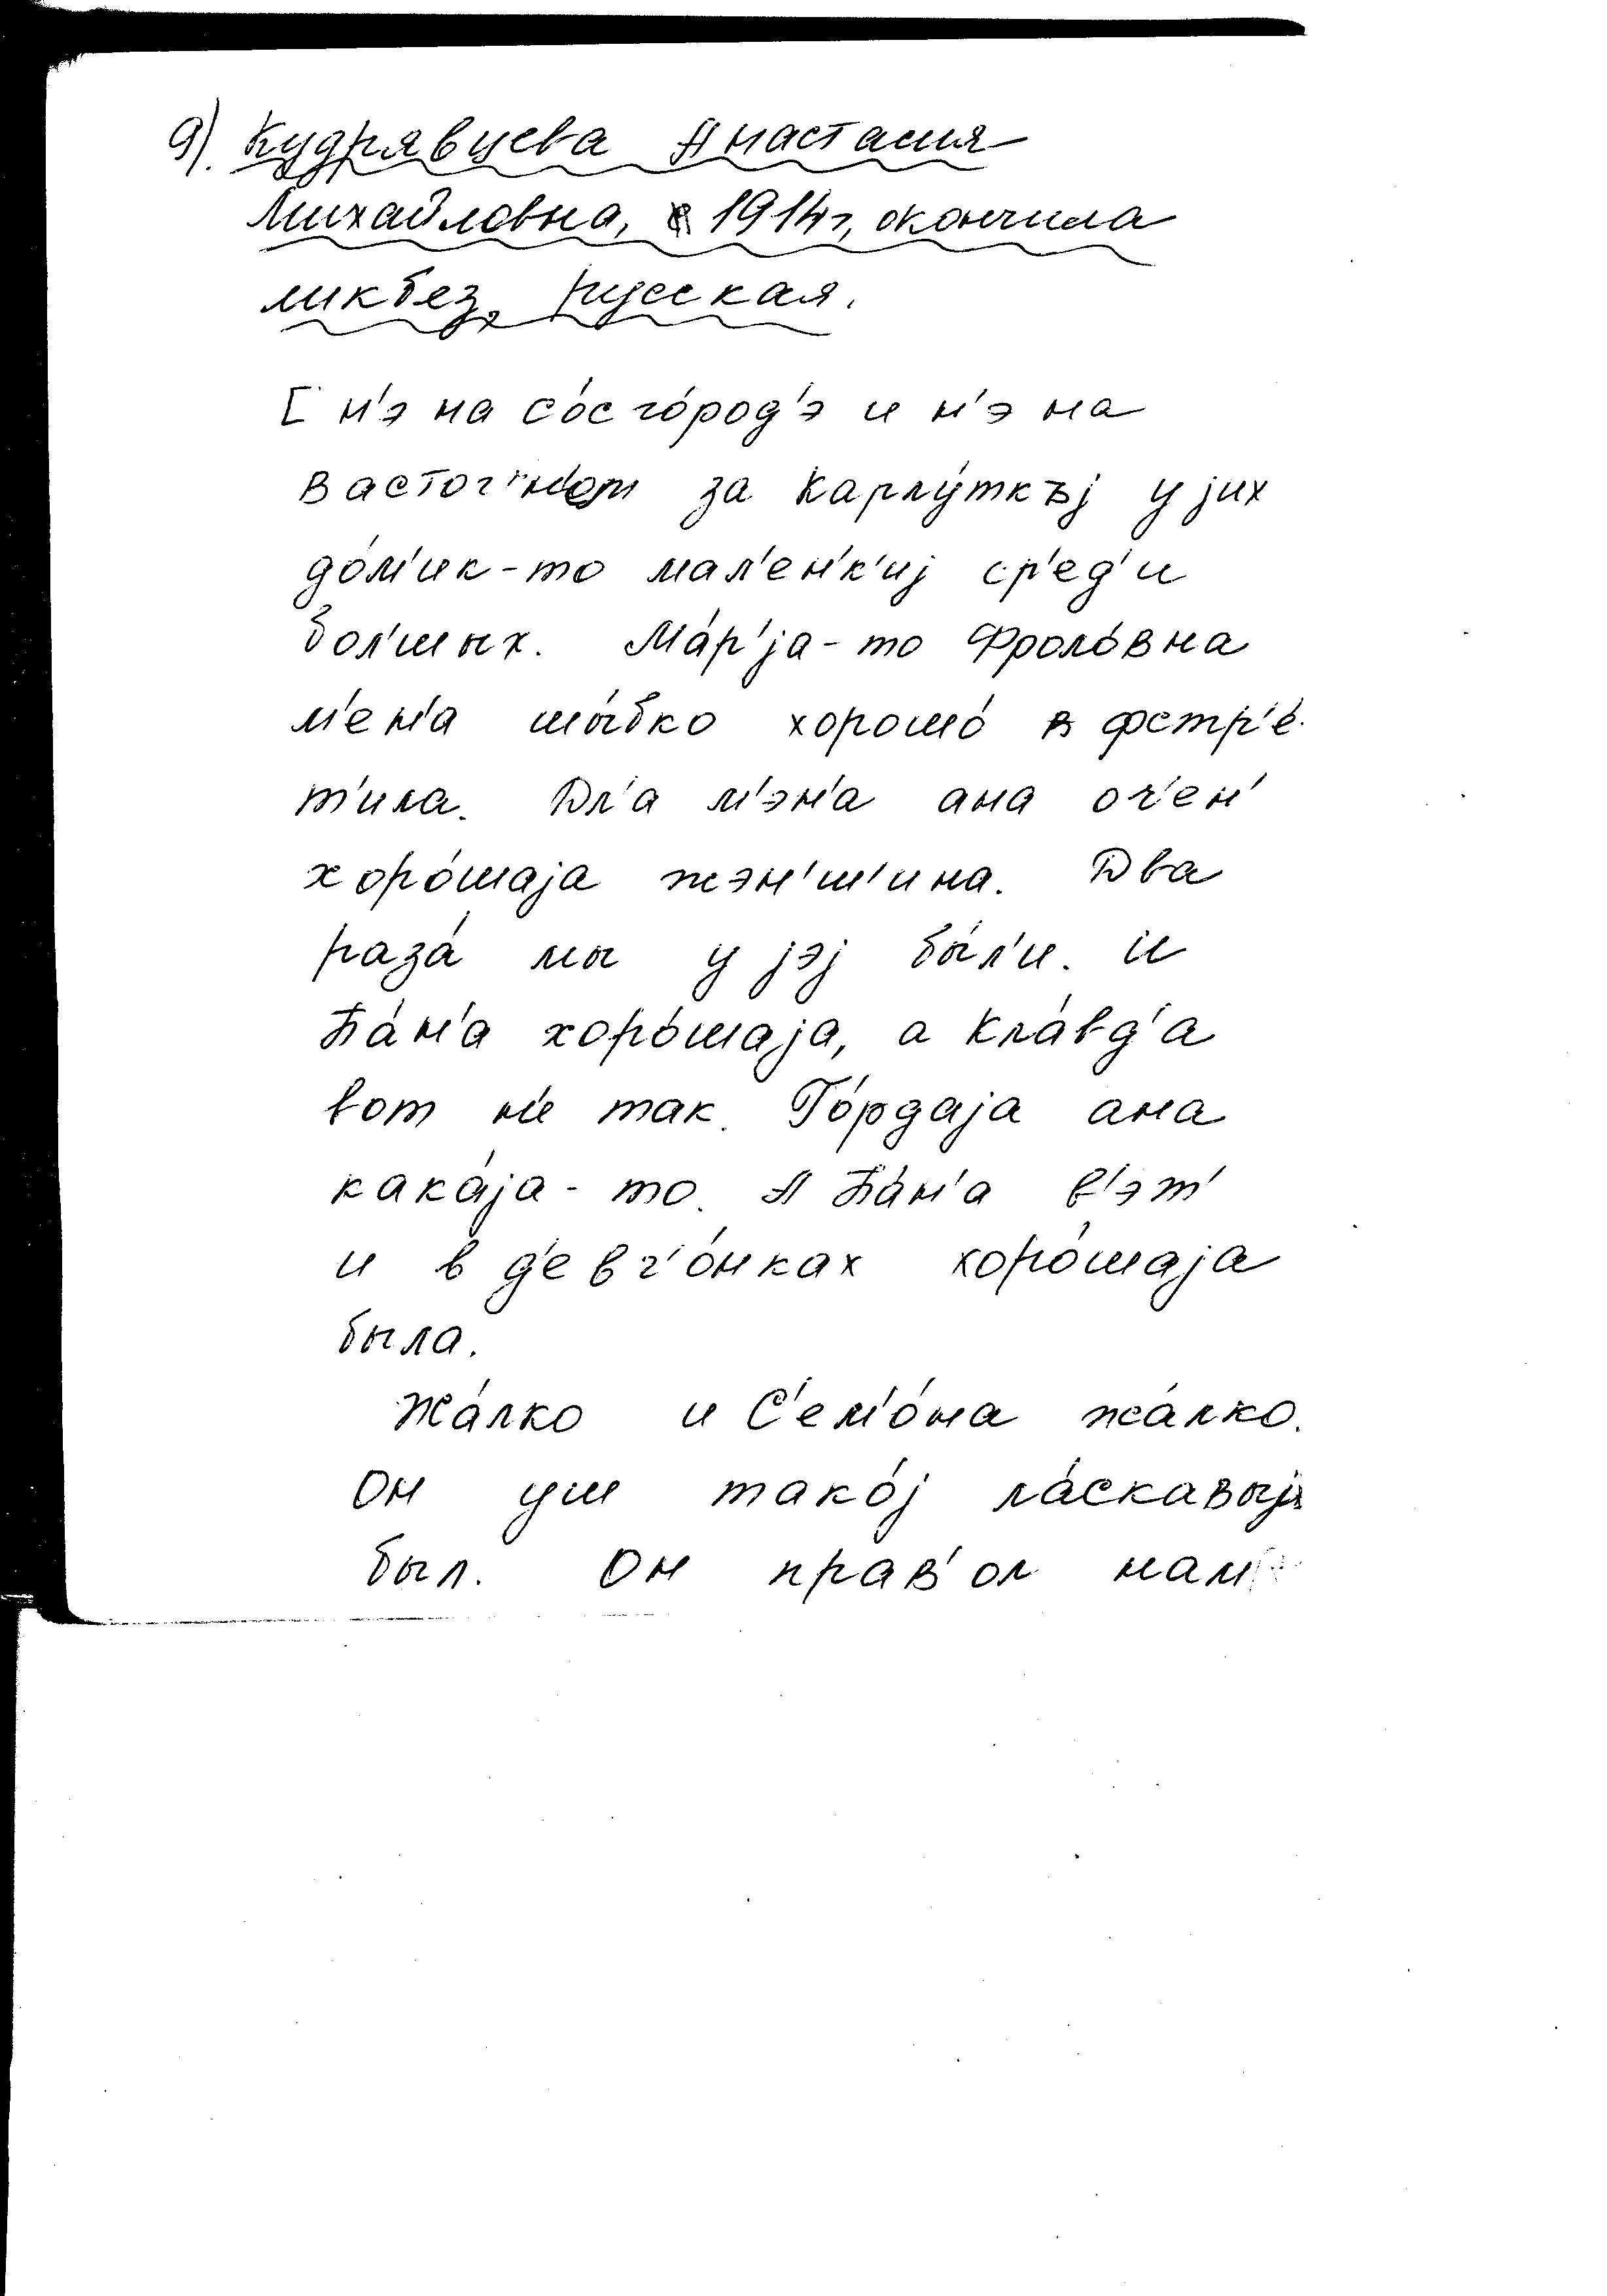 9). Кудрявцева Анастасия
Михайловна, 1914г, окончила
ликбез, русская.
[ н'э на со́сго́род'э и н'э на
васточ'ном за Карпу́ткъj у jих
до́м'ик-то мал'ен'к'иj ср'ед'и
бол'шых. Ма́р'jа-то Фроло́вна
м'ен'а шы́бко хорошо́ в фстр'е́-
т'ила. Дл'а м'эн'а ана оч'ен'
хоро́шаjа жэн'ш'ина. Два
раза́ мы у jэj бы́л'и. И
Ба́н'а хоро́шаjа, а Кла́вд'а
вот н'е так. Го́рдаjа ана
кака́jа-то. А Ба́н'а в'эт'
и в д'евч'о́нках хоро́шаjа
была.
Жа́лко и С'ем'о́на жа́лко.
Он уш тако́j ла́скавыj
был. Он прав'ол нам